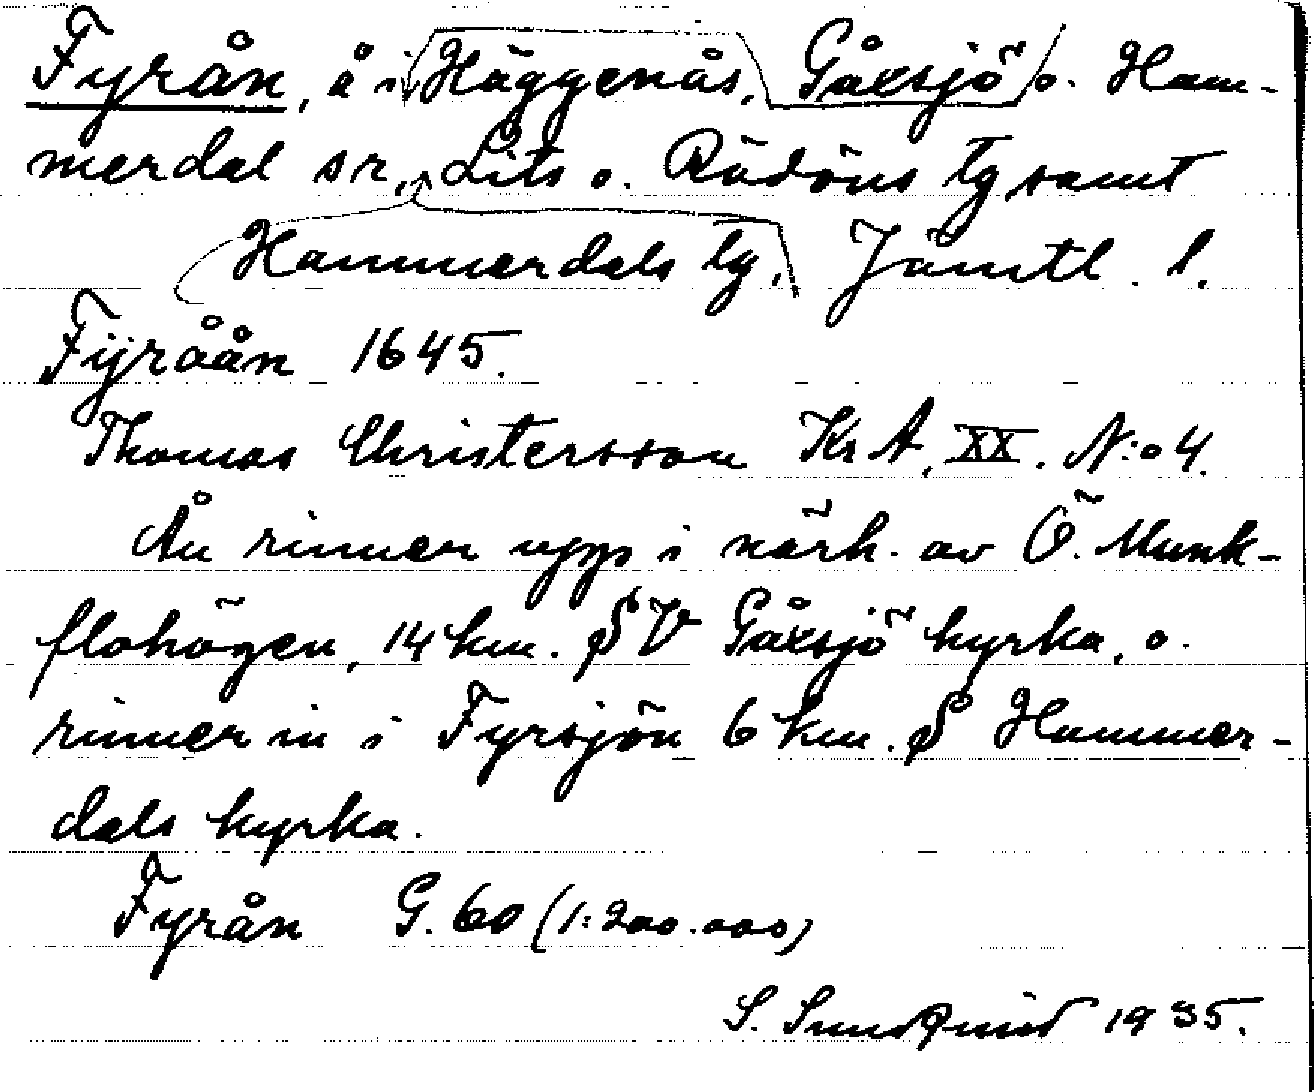 Fyrån, å i Häggenås, Gåxsjö o. Ham-
merdal sr, Lits o. Rödöns tg samt
Hammerdals tg, Jämtl. l.
Fijråån 1645.
Thomas Christersson Kr A, XX. N:o 4.
Ån rinner upp i närh. av Ö. Munk-
flohögen, 14 km. SV Gåxsjö kyrka, o.
rinner in i Fyrsjön 6 km. S Hammer-
dals kyrka.
Fyrån G. 60 (1:200.000)
S. Sundqvist 1935.